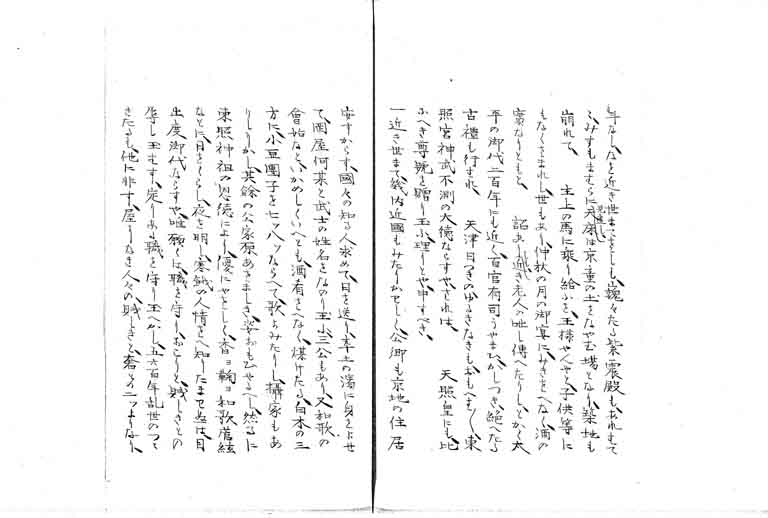 も年なし近き世まてはしも巍々たる紫宸殿もあれはて
みすもまはらに天原は京童の土をなや玉場となり築地も
崩れて 主上の馬に乗り給ふを王様やんやと子供等に
もなくさまれし世もあり仲秋の月の御宴にみきさへなく酒の
寡なりとも 詔ありし近き老人の咄し傳へたりしとかく太
平の御代二百年にも近く百官有司うやまひかしつき絶へたる
古禮も行まれ 天津日つきのゆるきなきもおもへはまし東
照宮神武不測の大徳ならすやされは 天照皇にも比
ふへき尊號を贈り玉ふ理りとや申すへき
一近き世まて畿内近國もみたりかはしく公卿も京地の住居
安すからす國々の知る人求めて日を送り率土の濱に身をよせ
て岡屋何某と武士の姓名をなのり玉ふ三公もあり又和歌の
會始なといかめしくいへとも酒肴さへなく煤けたる白木の三
方に小豆團子を七ツ八ツならへて歌よみたりし攝家もあ
りしりかし其餘の公家原あさましき姿おもひやるへし然るに
東照神祖の恩徳により優にやさしく香ヨ鞠ヨ和歌管絃
なとに日をくらし夜を明し寒餓の人情さへ知したまはぬは目
出度御代ならすや唯願くは職を守りおこりと賎しきとの
辱し玉はす定りある職を守り玉へかし五六百年乱世のつゝ
きたるも他に非す屋りなき人々の賎しきと奢との二ツよりなり